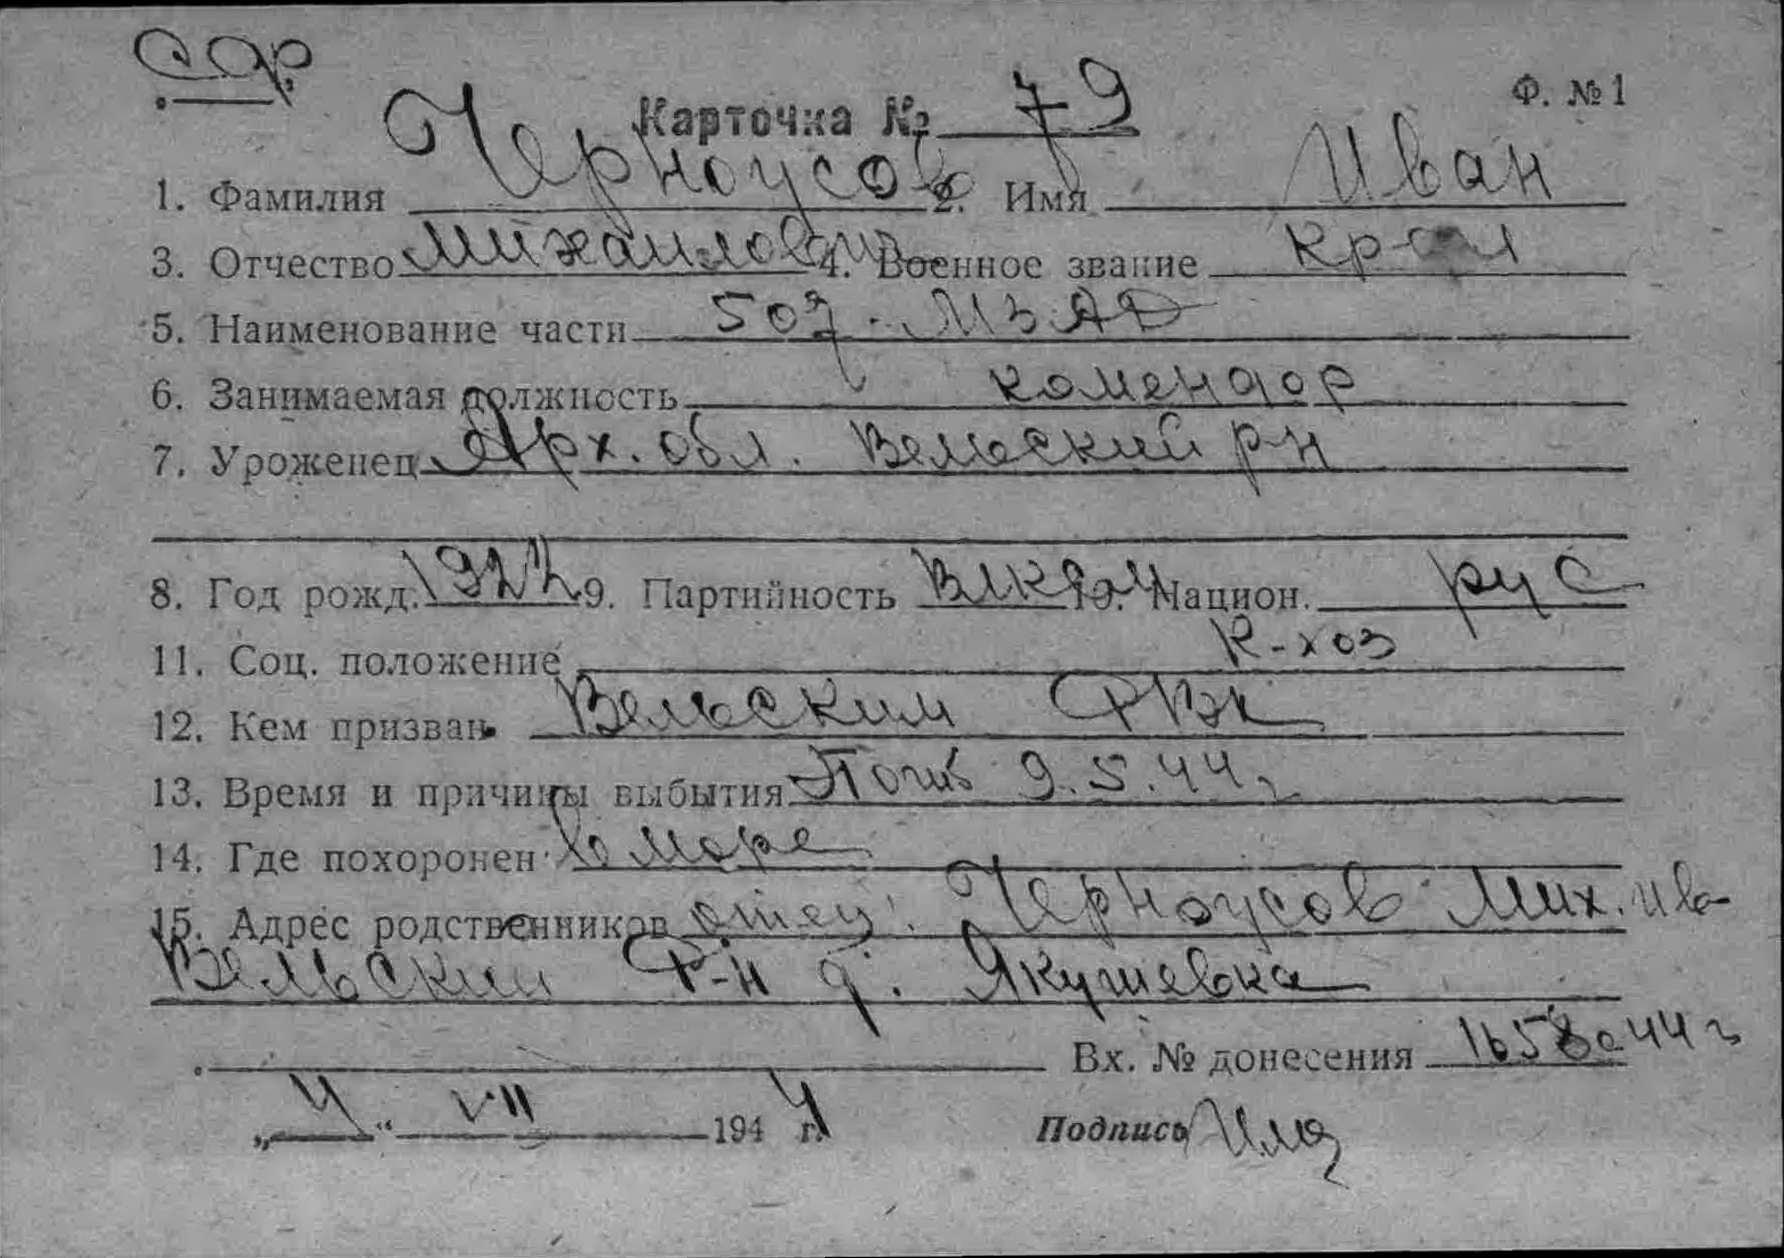 сф
Карточка № 79
Ф. № 1
1. Фамилия Черноусов 2. Имя Иван
3. Отчество Михайлович 4. Военное звание
5. Наименование части 507. МЗАД
6. Занимаемая должность комендор
7. Уроженец Арх. обл. Вельский р-н
8. Год рожд. 9. Партийность ВЛКСМ 10. Национ. рус
11. Соц. положение к-хоз
12. Кем призван Вельским РВК
13. Время и причины выбытия Погиб 9.5.44 г
14. Где похоронен В море
15. Адрес родственников отец: Черноусов Мих. Ив
Вельский р-н д. Якушевка
Вх. № донесения 44 г
„4“ VII 1944 г.
Подпись